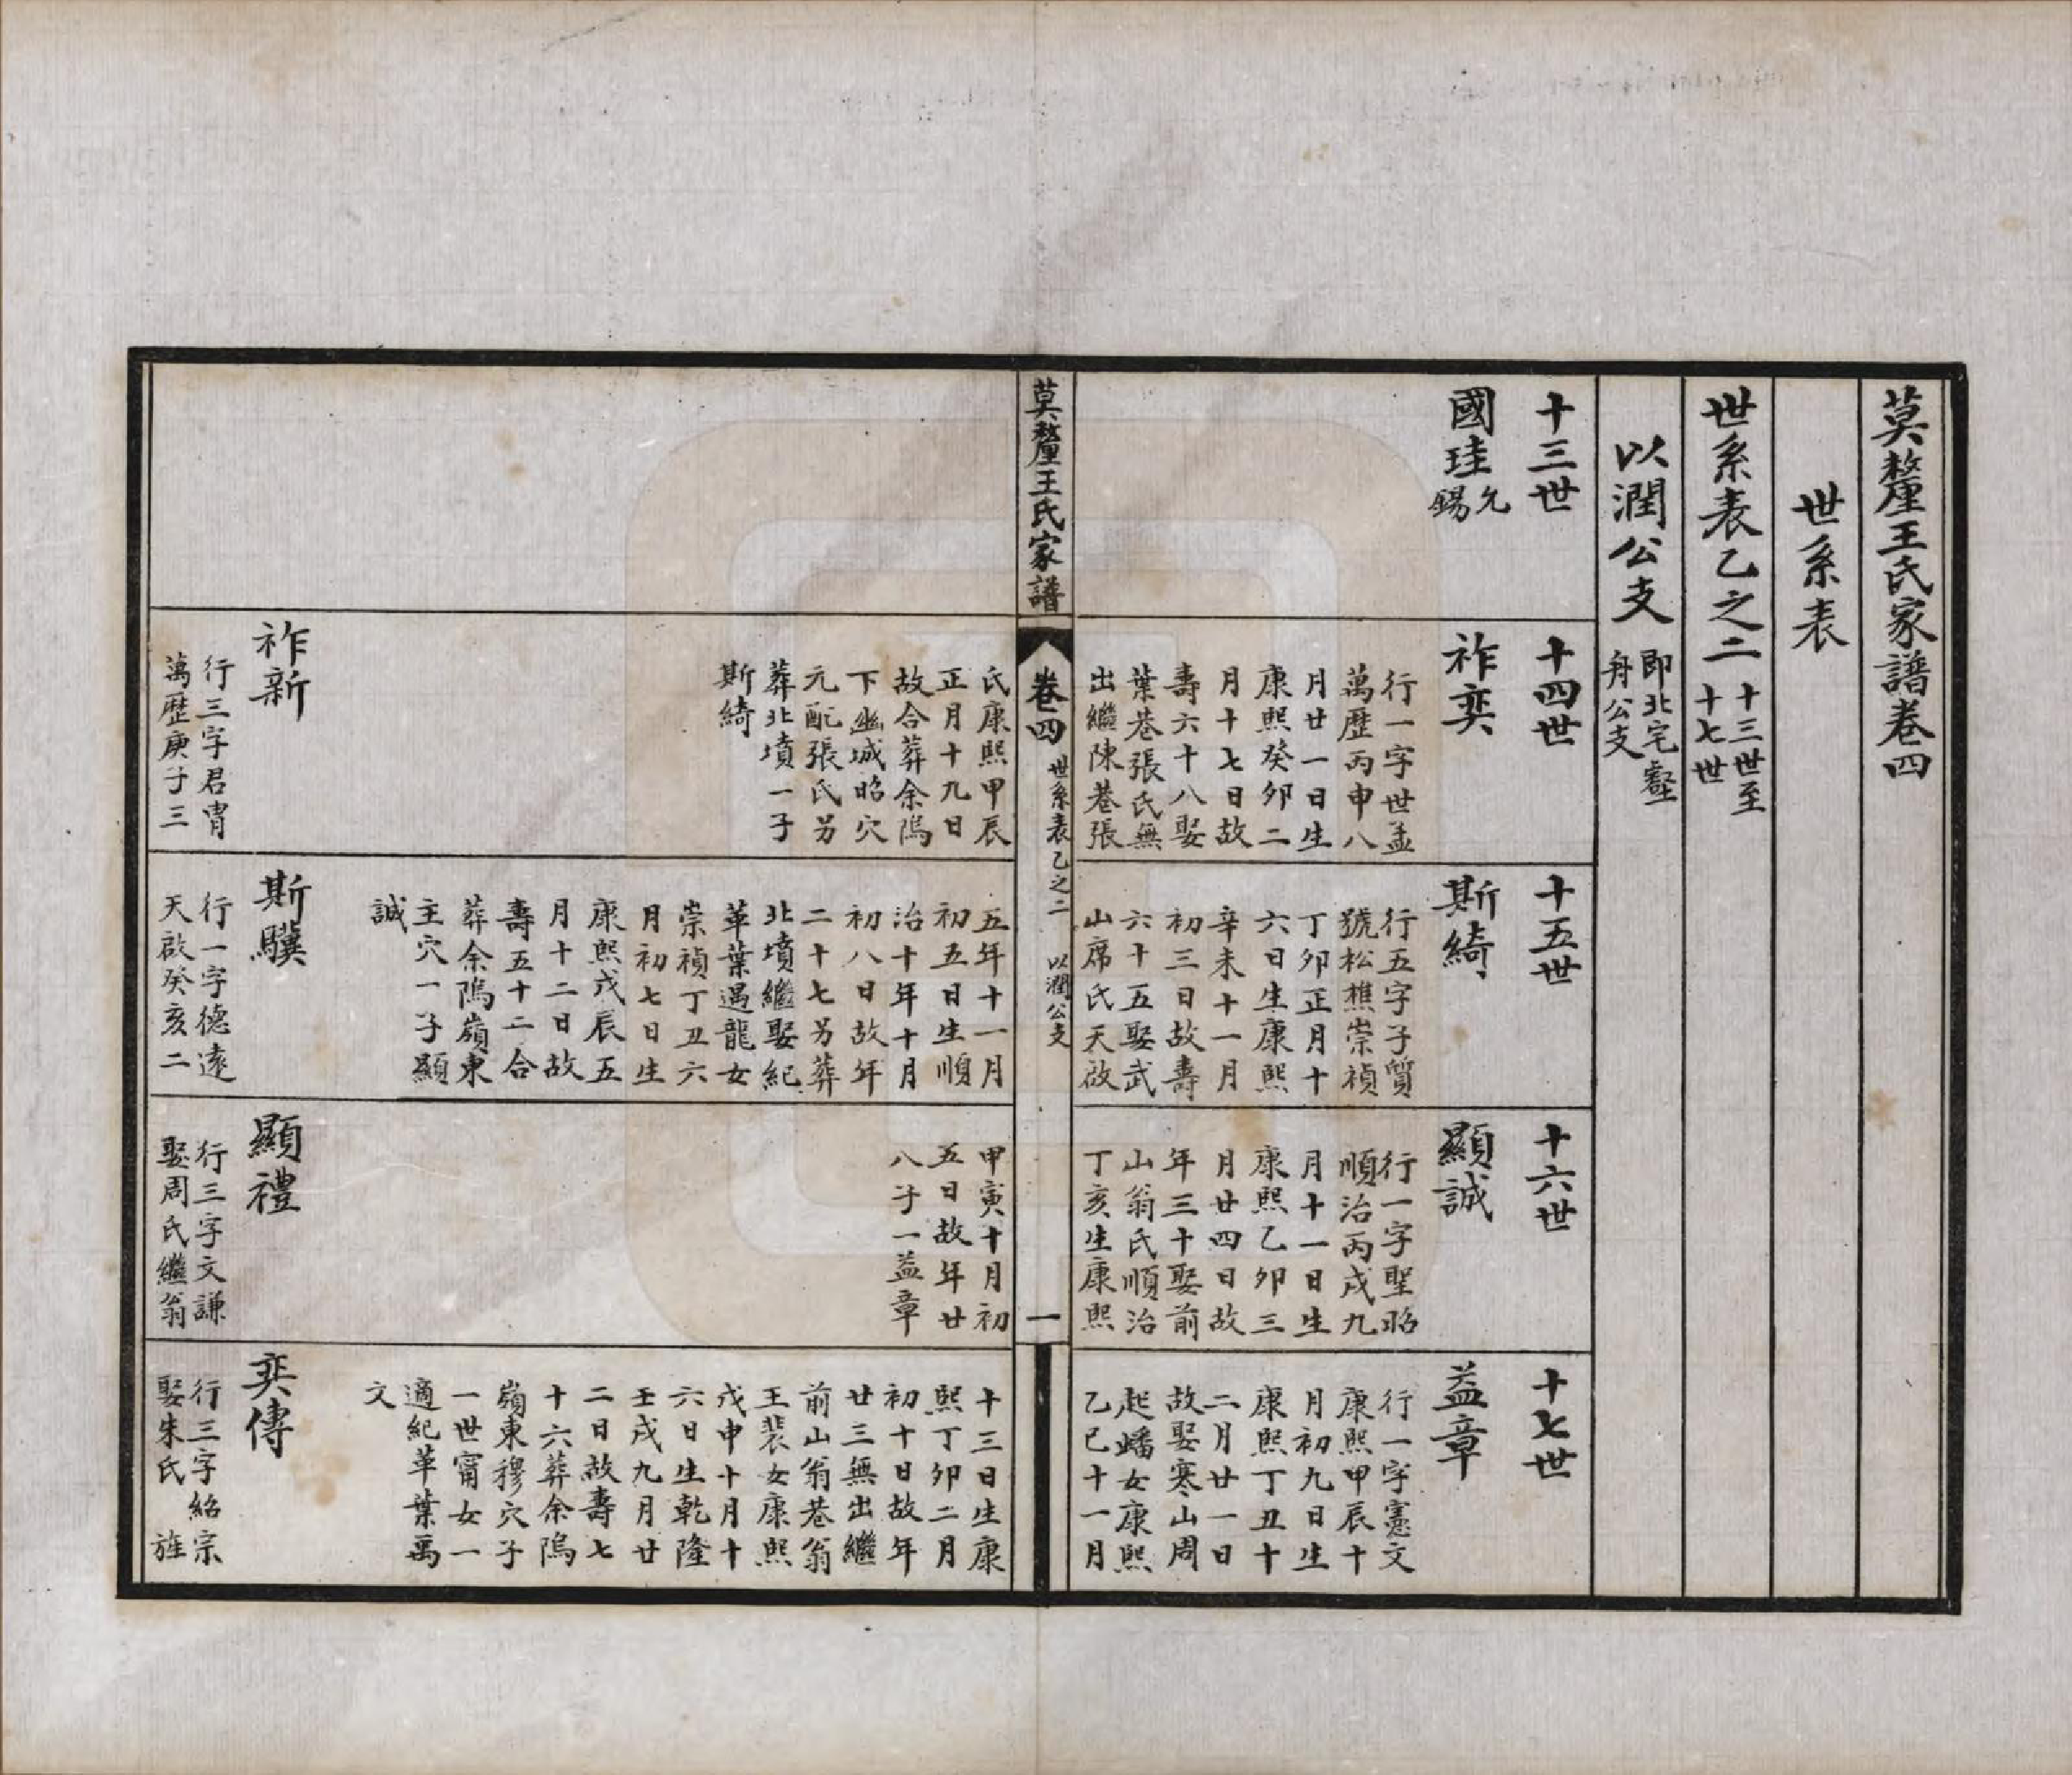 莫釐王氏家譜卷四
世系表
世系表乙之二
十三世至
十七世
以潤公支
即北宅壑
舟公支
十三世
國珪
允
錫
十四世
祚奕
行一字世孟
萬歷丙申八
月廿一日生
康熙癸卯二
月十七日故
壽六十八娶
葉巷張氏無
出繼陳巷張
十五世
斯綺
行五字子質
號松樵崇禎
丁卯正月十
六日生康熙
辛未十一月
初三日故壽
六十五娶武
山席氏天啟
十六世
顯誠
行一字聖昭
順治丙戌九
月十一日生
康熙乙卯三
月廿四日故
年三十娶前
山翁氏順治
丁亥生康熙
十七世
益章
行一字憲文
康熙甲辰十
月初九日生
康熙丁丑十
二月廿一日
故娶寒山周
起蟠女康熙
乙巳十一月
莫釐王氏家譜
卷四
世系表乙之二
以潤公支
一
氏康熙甲辰
正月十九日
故合葬余塢
下幽城昭穴
元配張氏另
葬北墳一子
斯綺
祚新
行三字君胄
萬歷庚子三
五年十一月
初五日生順
治十年十月
初八日故年
二十七另葬
北墳繼娶紀
革葉遇龍女
崇禎丁丑六
月初七日生
康熙戊辰五
月十二日故
壽五十二合
葬余隖嶺東
主穴一子顯
誠
斯驥
行一字德遠
天啟癸亥二
甲寅十月初
五日故年廿
八子一益章
顯禮
行三字文謙
娶周氏繼翁
十三日生康
熙丁卯二月
初十日故年
廿三無出繼
前山翁巷翁
王裴女康熙
戊申十月十
六日生乾隆
壬戌九月廿
二日故壽七
十六葬余隖
嶺東穆穴子
一世甯女一
適紀革葉禹
文
奕傳
行三字紹宗
娶朱氏 旌